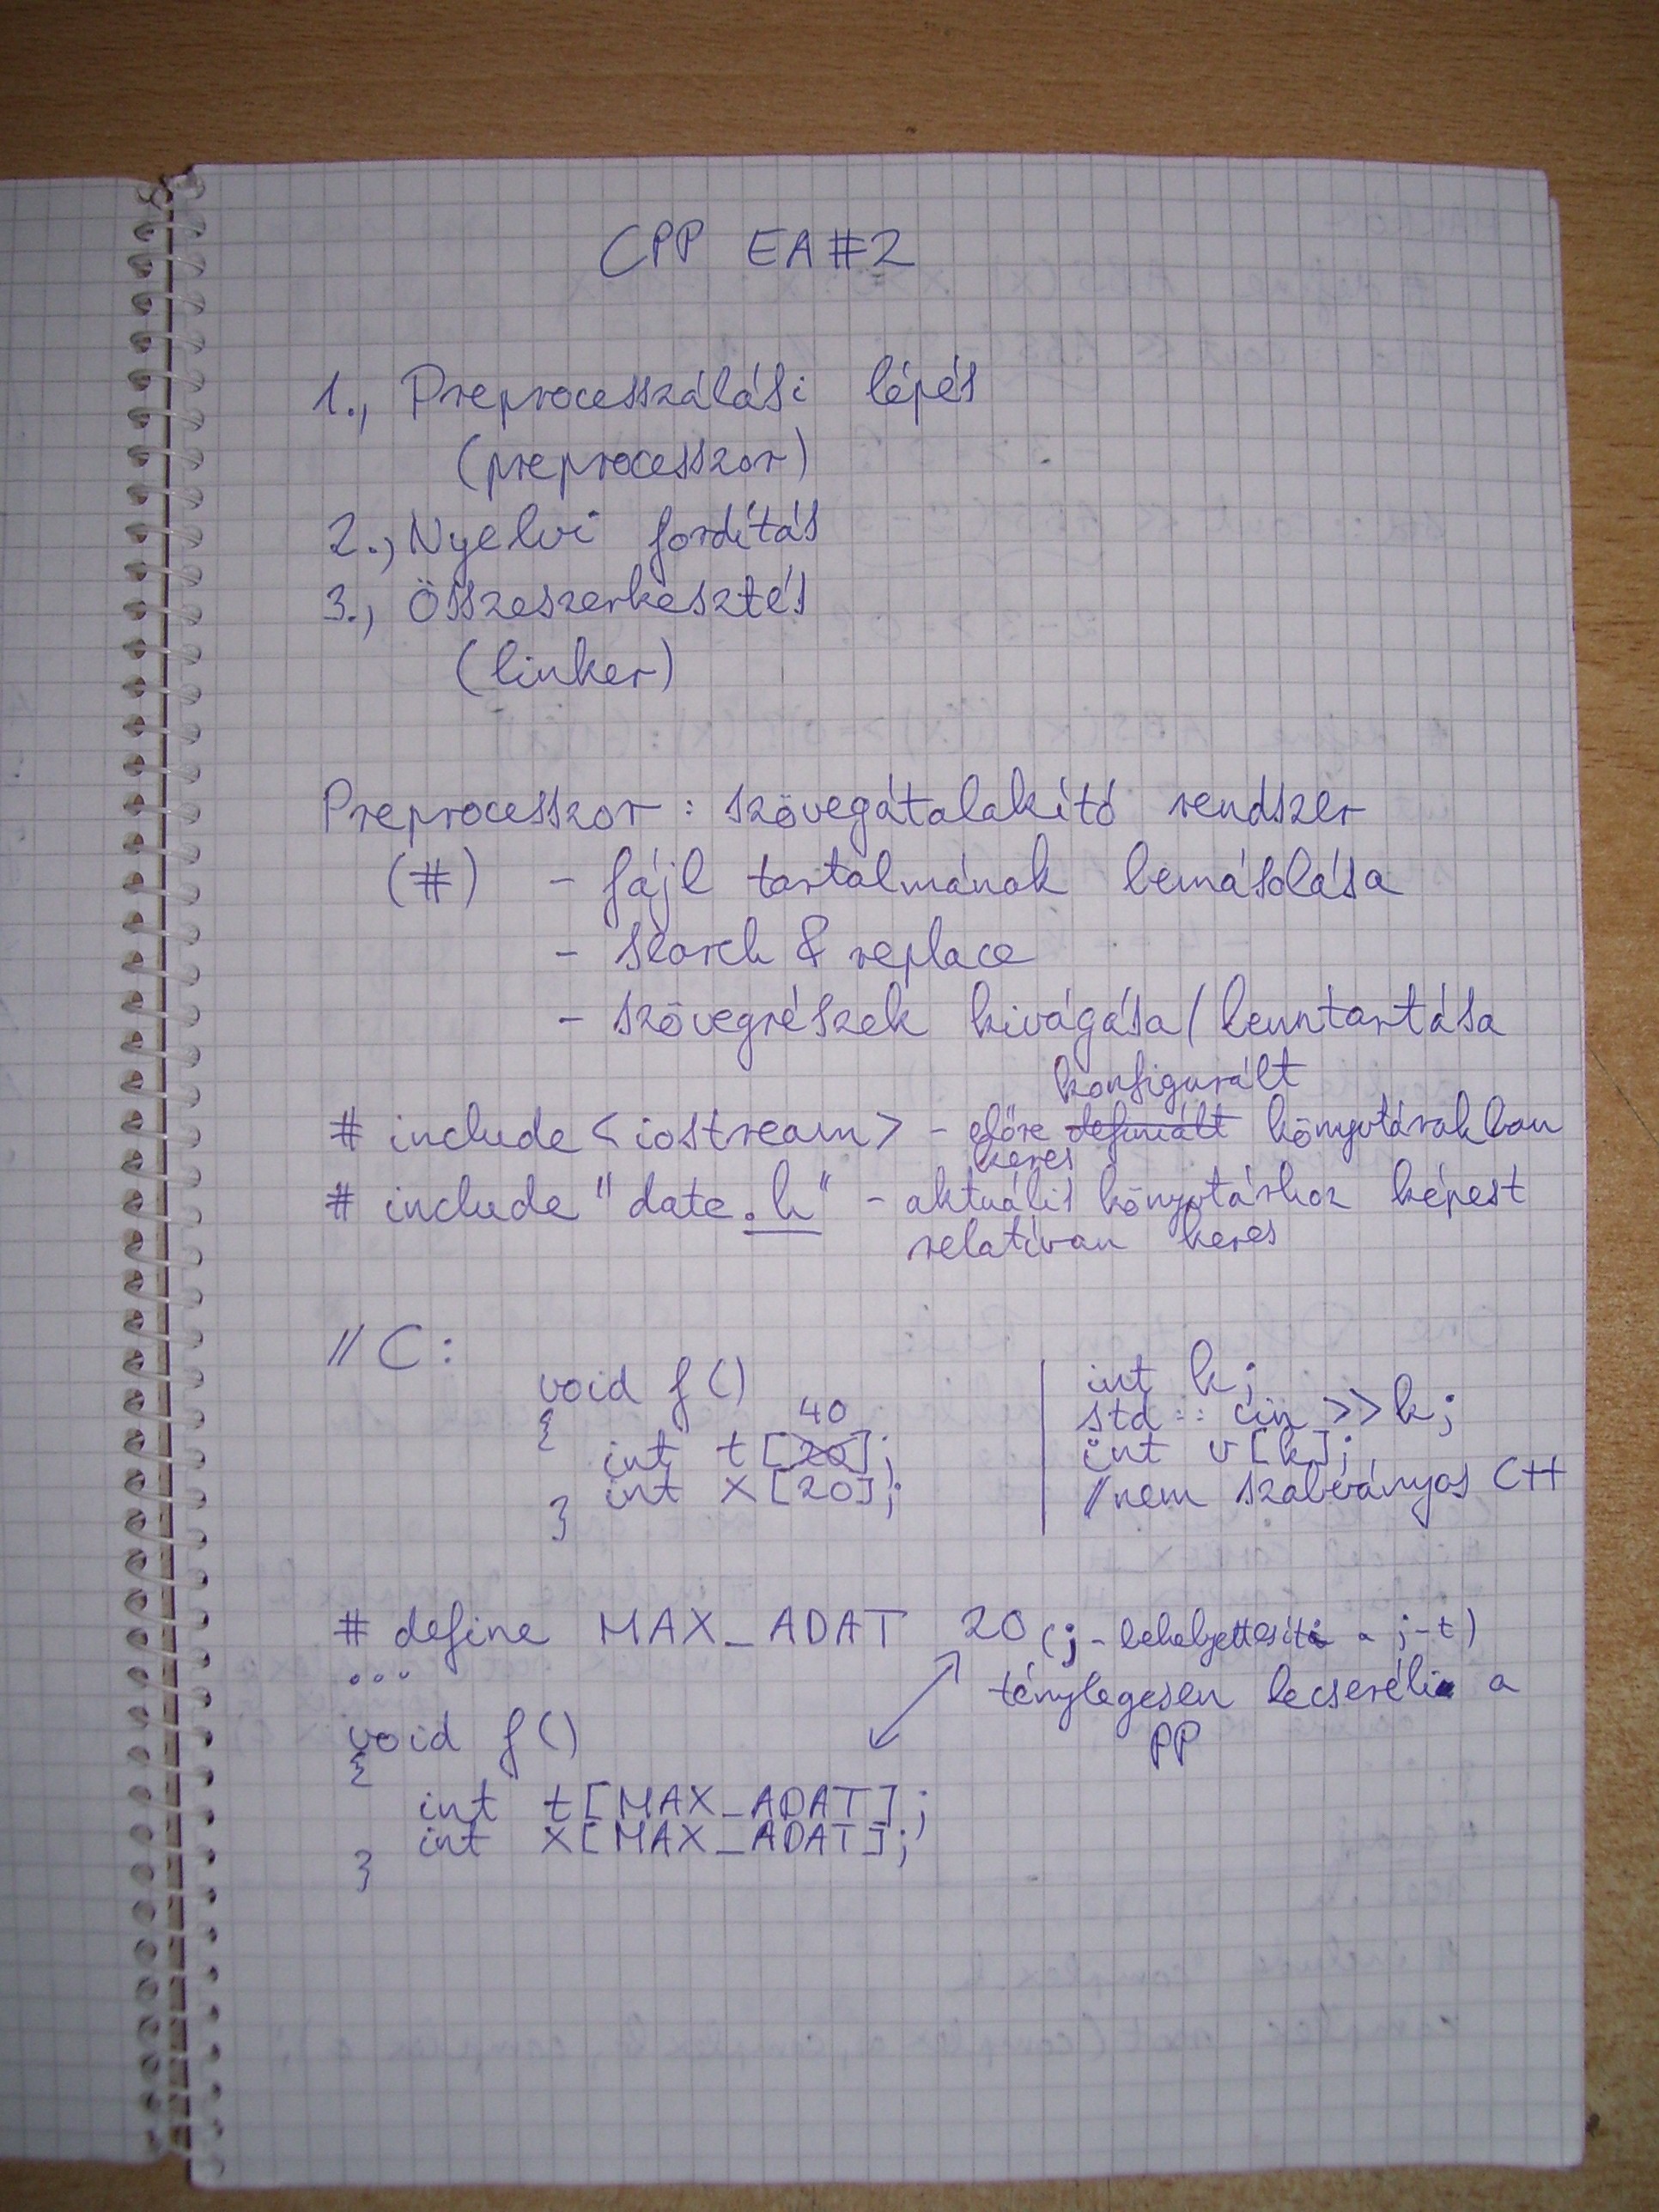 CPP EA#2
1., Preprocesszálási lépés
(preprocesszor)
2., Nyelvi fordítás
3., Összeszerkesztés
(linker)
Preprocesszor : szövegátalakító rendszer
(#) - fájl tartalmának bemásolása
- search & replace
- szövegrészek kivágása/benntartása
konfigurált
# include <iostream> - előre definiált könyvtárakban
keres
# include "date.h" - aktuális könyvtárhoz képest
relatívan keres
// C:
void f()
{
40
int t[20];
int x[20];
}
int k;
std::cin >> k;
int v[k];
//nem szabványos C++
# define MAX_ADAT 20 (; - behelyettesíti a ;-t)
... ténylegesen lecseréli a
PP
void f()
{
int t[MAX_ADAT];
int x[MAX_ADAT];
}